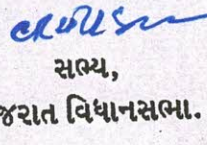 સભ્ય,
જરાત વિધાનસભા.